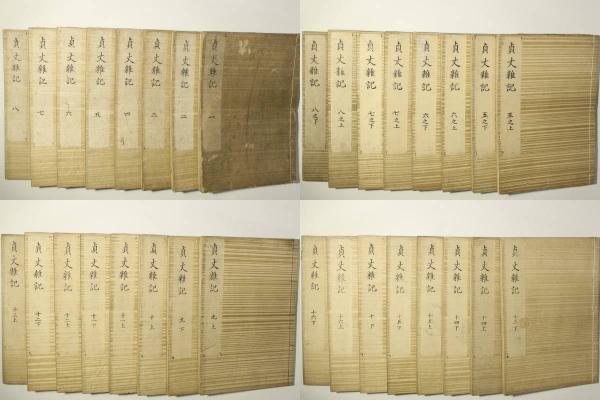 貞丈雑記 一
貞丈雑記 二
貞丈雑記 三
貞丈雑記 四
貞丈雑記 五
貞丈雑記 六
貞丈雑記 七
貞丈雑記 八
貞丈雑記 五之上
貞丈雑記 五之下
貞丈雑記 六之上
貞丈雑記 六之下
貞丈雑記 七之上
貞丈雑記 七之下
貞丈雑記 八之上
貞丈雑記 八之下
貞丈雑記 九上
貞丈雑記 九下
貞丈雑記 十上
貞丈雑記 十一上
貞丈雑記 十一下
貞丈雑記 十二上
貞丈雑記 十二下
貞丈雑記 十三上
貞丈雑記 十三下
貞丈雑記 十四上
貞丈雑記 十四下
貞丈雑記 十五上
貞丈雑記 十五下
貞丈雑記 十下
貞丈雑記 十六上
貞丈雑記 十六下